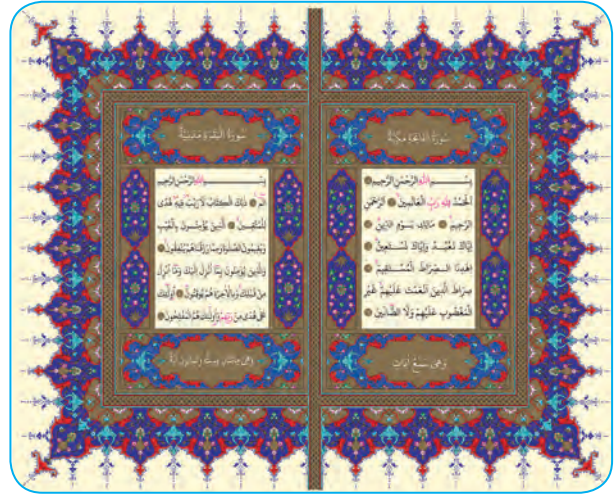 سورة الفاتحة مكية
بسم الله الرحمن الرحيم
الحمد لله رب العالمين الرحمن
الرحيم مالك يوم الدين
إياك نعبد وإياك نستعين
اهدنا الصراط المستقيم
صراط الذين أنعمت عليهم غير
المغضوب عليهم ولا الضالين
وهي سبع آيات
سورة البقرة مدنية
بسم الله الرحمن الرحيم
الم ذلك الكتاب لا ريب فيه هدى
للمتقين الذين يؤمنون بالغيب
ويقيمون الصلوة ومما رزقناهم ينفقون
والذين يؤمنون بما أنزل إليك وما أنزل
من قبلك وبالآخرة هم يوقنون أولئك
على هدى من ربهم وأولئك هم المفلحون
وهي مائتان وست وثمانون آية